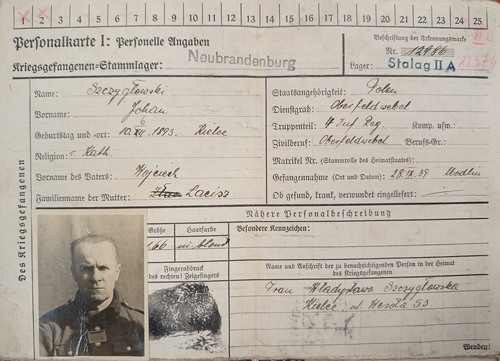 1 2 3 4 5 6 7 8 9 10 11 12 13 14 15 16 17 18 19 20 21 22 23 24 25
Personalkarte I: Personelle Angaben
Kriegsgefangenen-Stammlager: Neubrandenburg
Beschriftung der Erkennungsmarke
Nr. 12986
Lager: Stalag II A
Des Kriegsgefangenen
Name: Szczygłowski
Vorname: Johan
Geburtstag und -ort: 10. 1893. Kielce
Religion: Kath
Vorname des Vaters: Wojciech
Familienname der Mutter: Lacisz
Staatsangehörigkeit: Polen
Dienstgrad: Oberfeldwebel
Truppenteil: 4 Inf. Reg Komp. usw.:
Zivilberuf: Oberfeldwebel Berufs-Gr.:
Matrikel Nr. (Stammrolle des Heimatstaates):
Gefangennahme (Ort und Datum): 28.IX.39 Modlin
Ob gesund, krank, verwundet eingeliefert:
Nähere Personalbeschreibung
Größe Haarfarbe
1.66 m. blond
Besondere Kennzeichen:
Fingerabdruck
des rechten! Zeigefingers
Name und Anschrift der zu benachrichtigenden Person in der Heimat
des Kriegsgefangenen
Frau Władysława Szczygłowska
Kielce ul. Wesoła 53
Wenden!